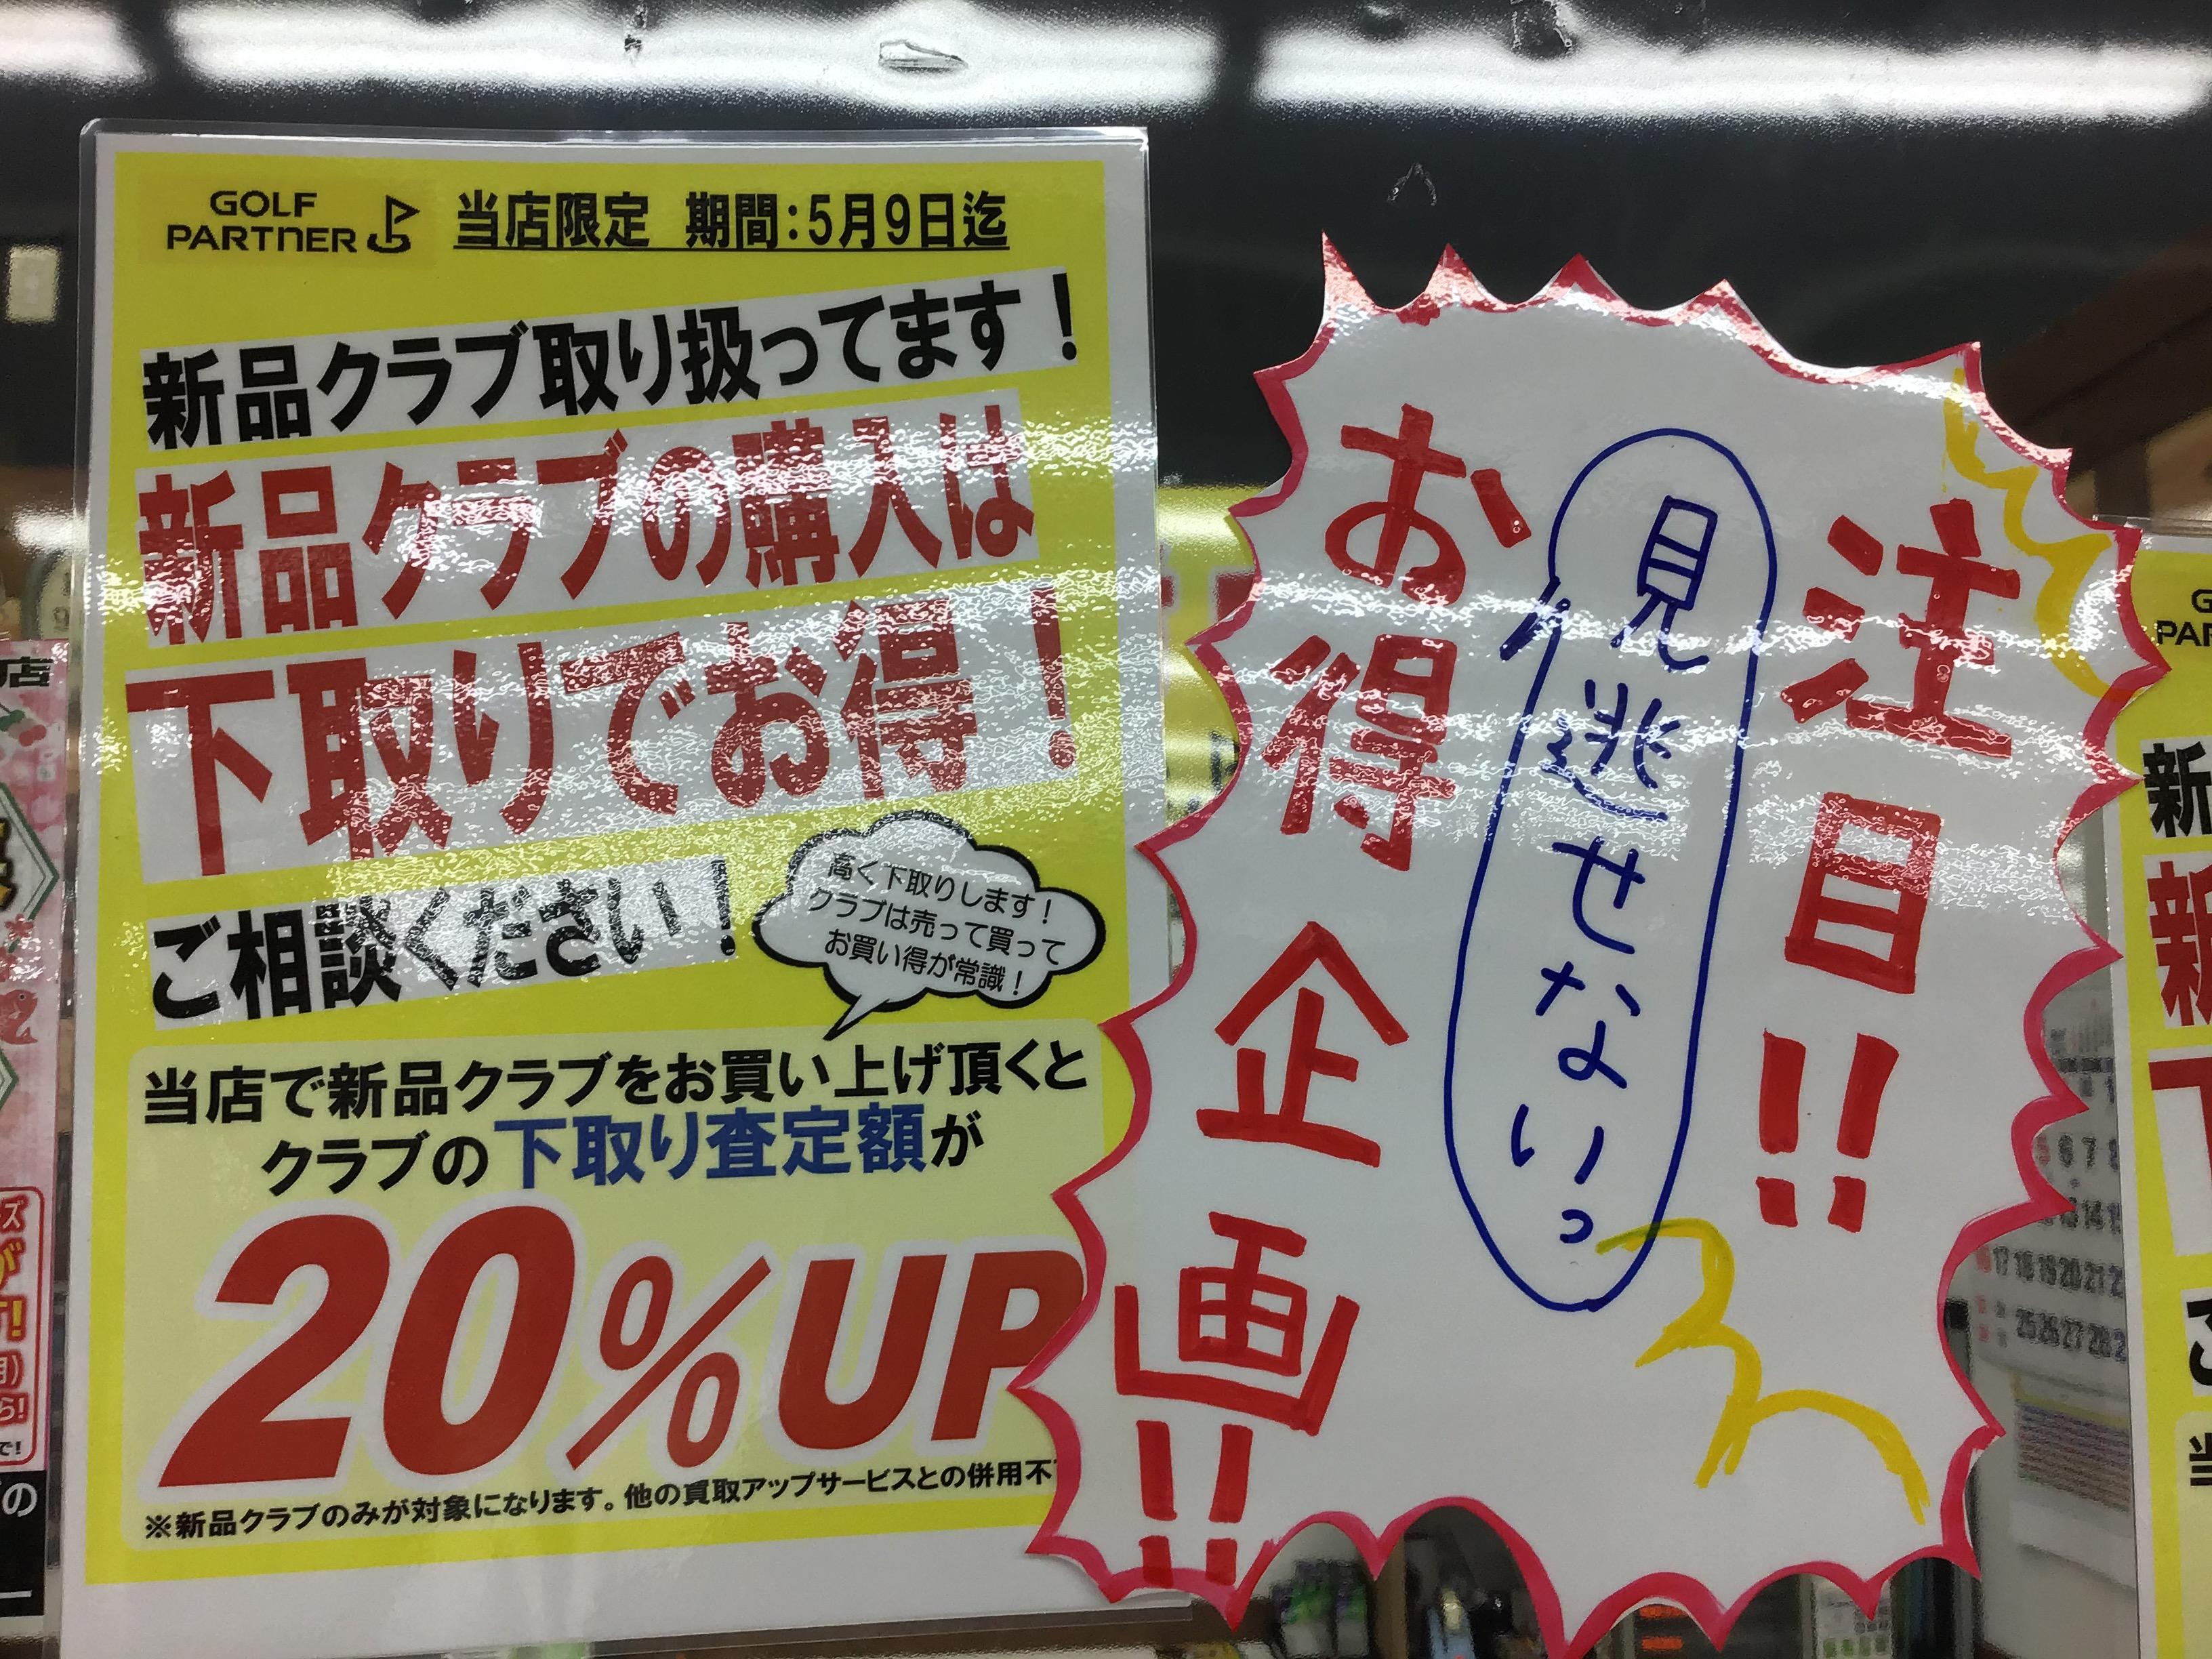 GOLF
PARTNER
当店限定 期間：5月9日迄
新品クラブ取り扱ってます！
新品クラブの購入は
下取りでお得！
ご相談ください！
高く下取りします！
クラブは売って買って
お買い得が常識！
当店で新品クラブをお買い上げ頂くと
クラブの下取り査定額が
20%UP
※新品クラブのみが対象になります。他の買取アップサービスとの併用不
注目!!
見逃せないっ
お得企画!!
店
ズ
の
新
新
6 7 8
13 14 15
17 18 19 20 21 2
25 26 27 28 2